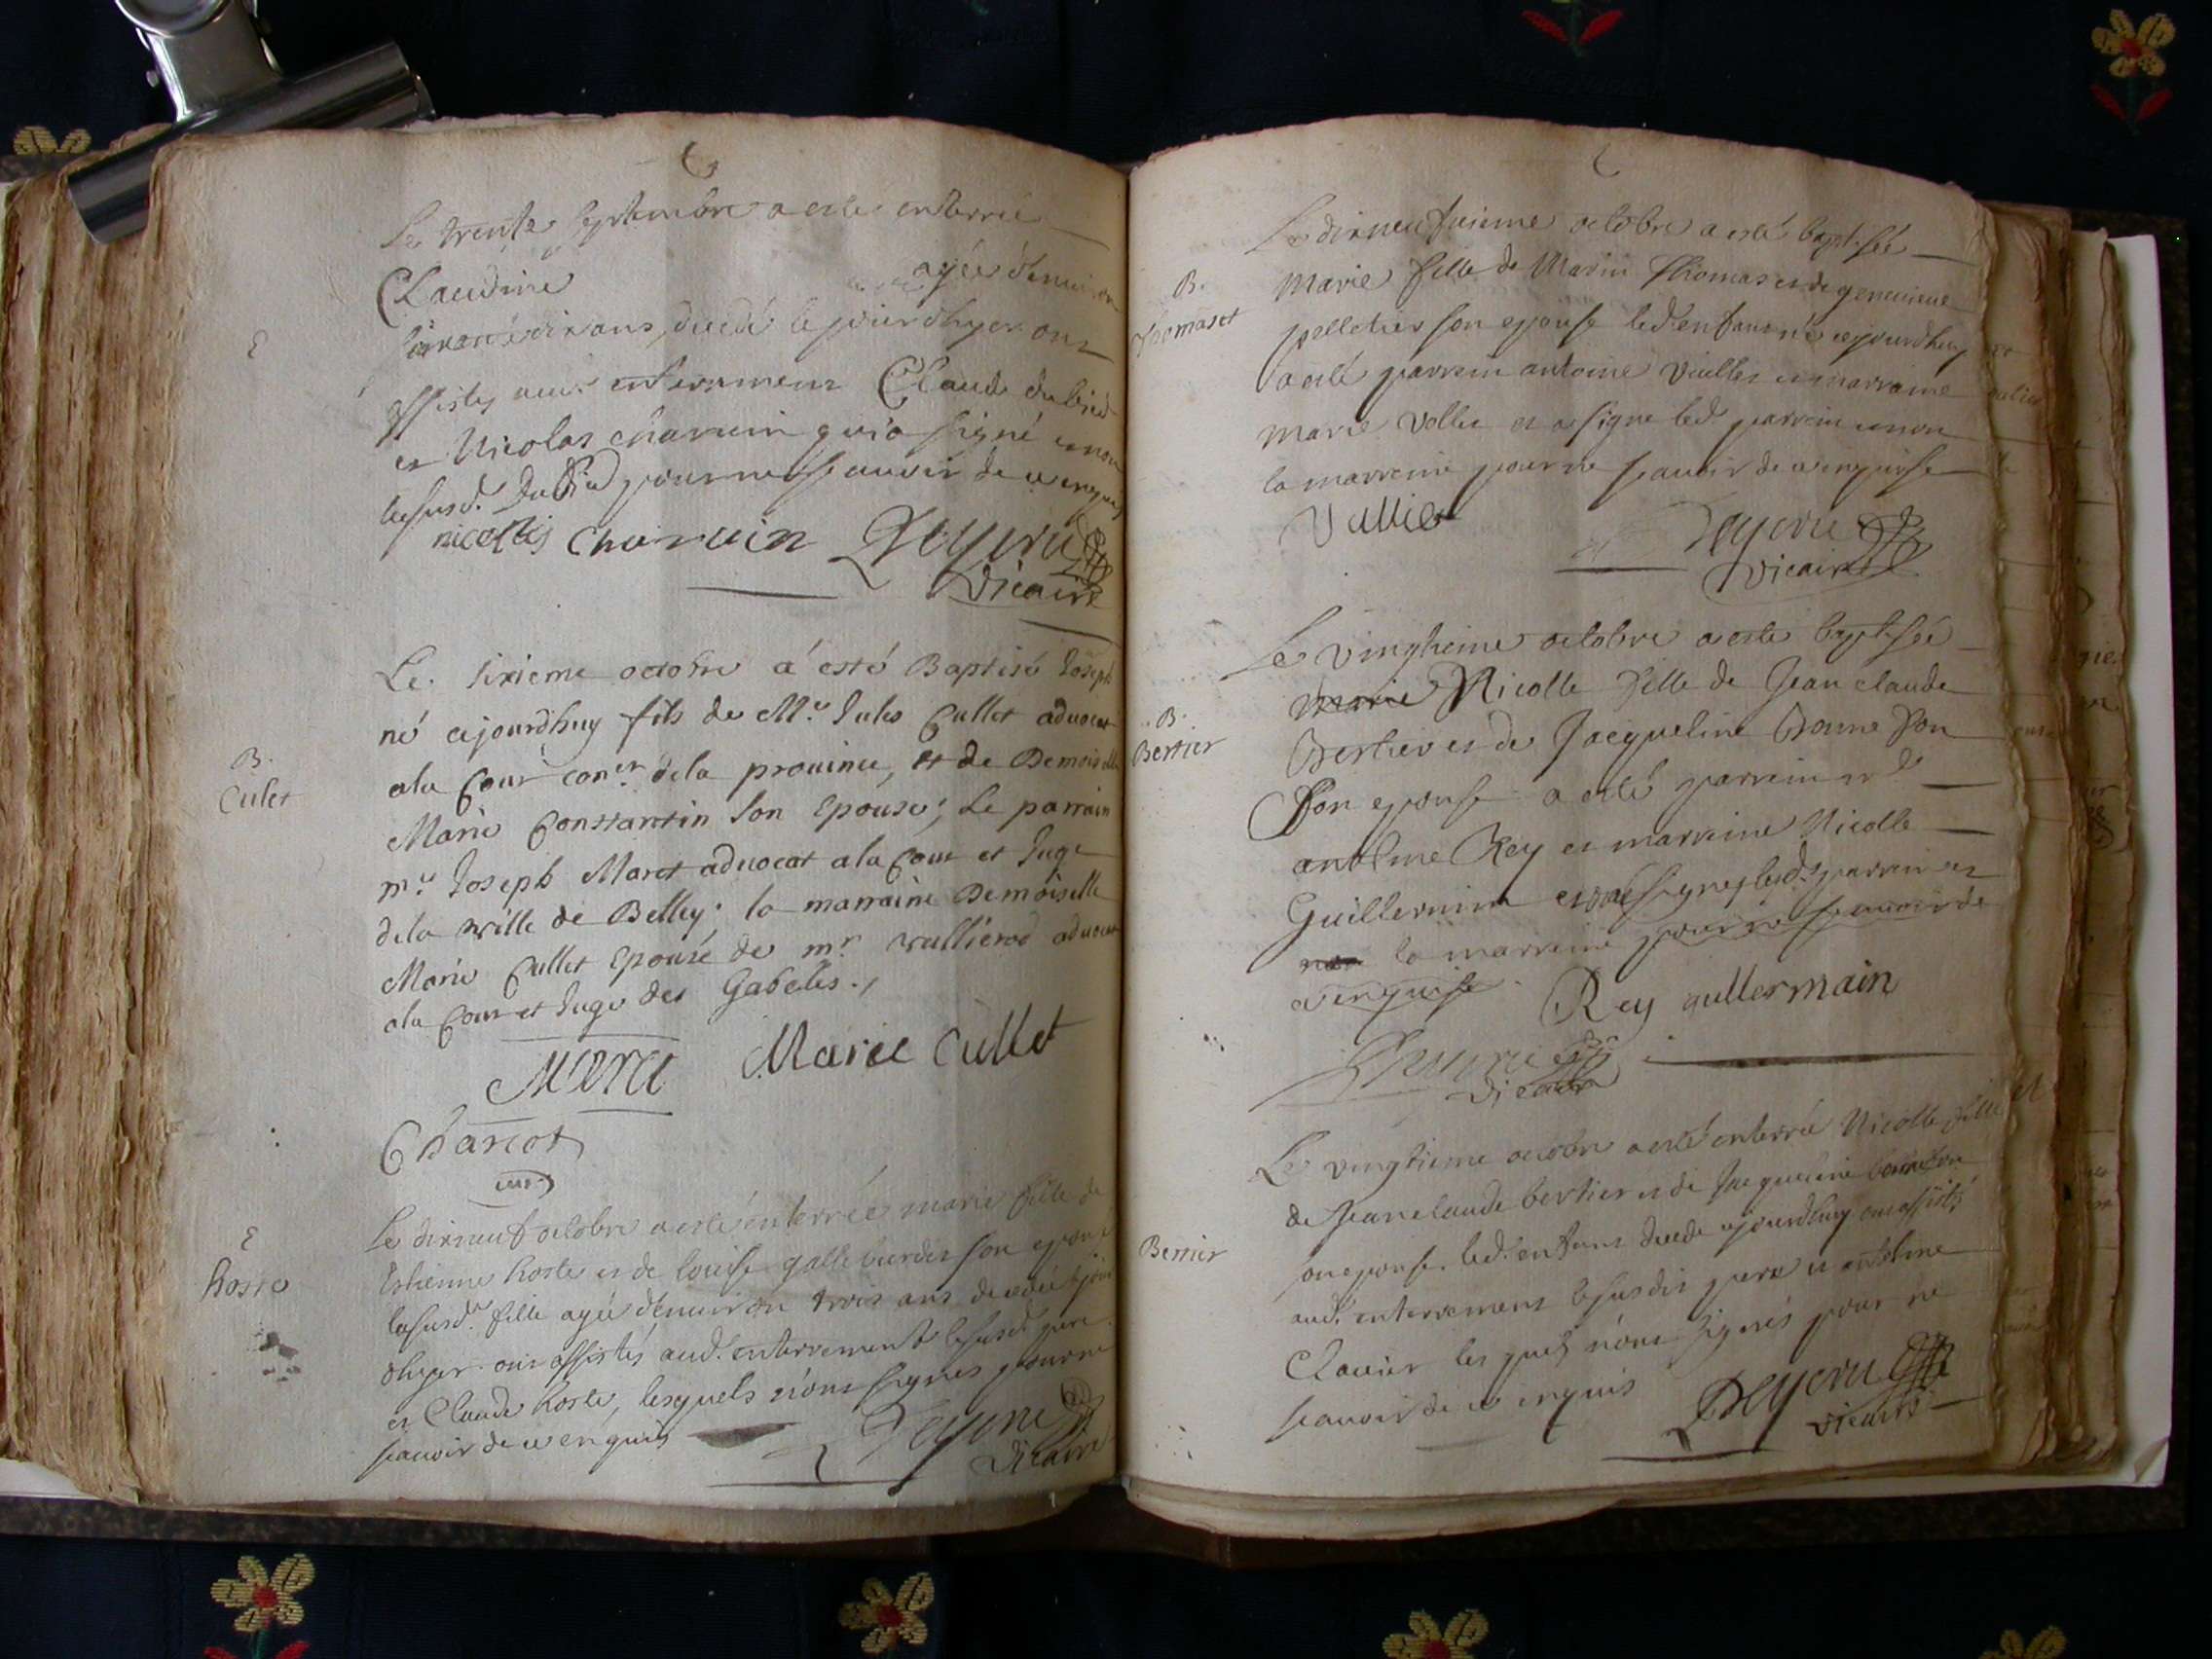 Le trente septembre a esté enterrée
Claudine agée d'environ
dix ans, decedé le jour dhyer ont
assistes aud. enterrement Claude dubied
E
et Nicolas charvin qui a signé et non
lesusd. Dubied pour ne sçavoir de ce enquis
nicollas charvin Peyerie
vicaire
Le sixieme octobre a esté Baptisé Joseph
né cejourdhuy fils de Mr. Jules Cullet advocat
B.
Culet
ala Cour coner. dela province, et de Demoiselle
Marie Constantin son Epouse; Le parrain
mr. Joseph Maret advocat ala Cour et Juge
dela ville de Belley; la marraine Demoiselle
Marie Cullet Epouse de mr. advocat
ala Cour et Juge des Gabeles.
Maret Marie Cullet
Charcot
cur.
Le dixneuf octobre a esté enterrée marie fille de
E
hoste
Estienne hoste et de Louise son epouse
lasusd. fille agée d'environ trois ans decedée le jour
dhyer. ont assistés aud. enterrement lesusd. pere
et Claude hoste, lesquels n'ont signes pour ne
scavoir de ce enquis Peyerie
vicaire
Le dixneufvieme octobre a esté baptisée
B.
Thomaset
Marie fille de Marin Thomas et de genevieve
pelletier son epouse led. enfant né cejourdhuy
a esté parrein antoine Viallier et marraine
marie et a signe led. parrein et non
la marreine pour ne scavoir de ce enquise
Vallier Peyerie
vicaire
Le vingtieme octobre a esté baptisée
B.
Bertier
marie Nicolle fille de Jean claude
Bertier et de Jacqueline Bonne son
son epouse a esté parrein sr
antelme Rey et marreine Nicolle
Guillermin et ont signes lesd. parrein et
non la marreine pour ne scavoir de
ce enquise. Rey gullermain
Peyerie
vicaire
Le vingtieme octobre a esté enterrée Nicolle fille
de Jeanclaude bertier et de Jacqueline
Bertier
son epouse. led. enfant decede cejourdhuy ont assistés
aud. enterrement lesusdit pere et antelme
Clavier les quels n'ont signés pour ne
scavoir de ce enquis Peyerie
vicaire